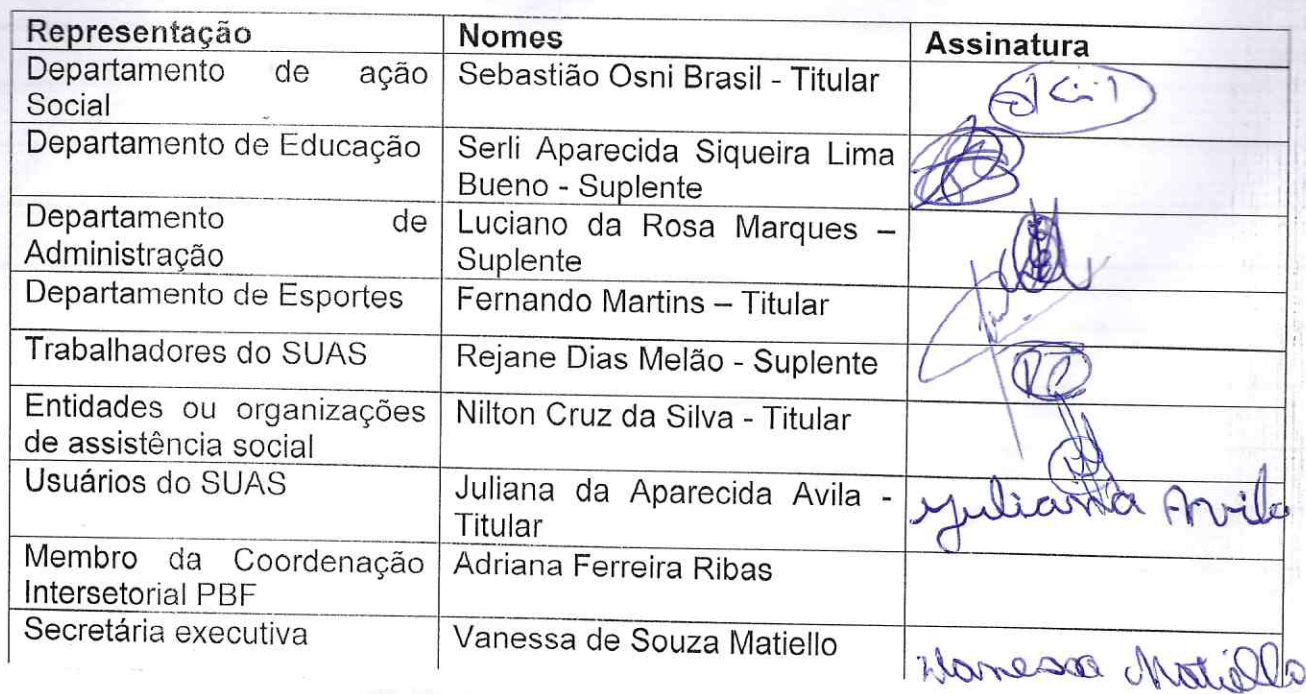 Representação Nomes Assinatura
Departamento de ação Social
Sebastião Osni Brasil - Titular
Departamento de Educação
Serli Aparecida Siqueira Lima Bueno - Suplente
Departamento de Administração
Luciano da Rosa Marques – Suplente
Departamento de Esportes
Fernando Martins – Titular
Trabalhadores do SUAS
Rejane Dias Melão - Suplente
Entidades ou organizações de assistência social
Nilton Cruz da Silva - Titular
Usuários do SUAS
Juliana da Aparecida Avila - Titular
Juliana Avila
Membro da Coordenação Intersetorial PBF
Adriana Ferreira Ribas
Secretária executiva
Vanessa de Souza Matiello
Vanessa Matiello